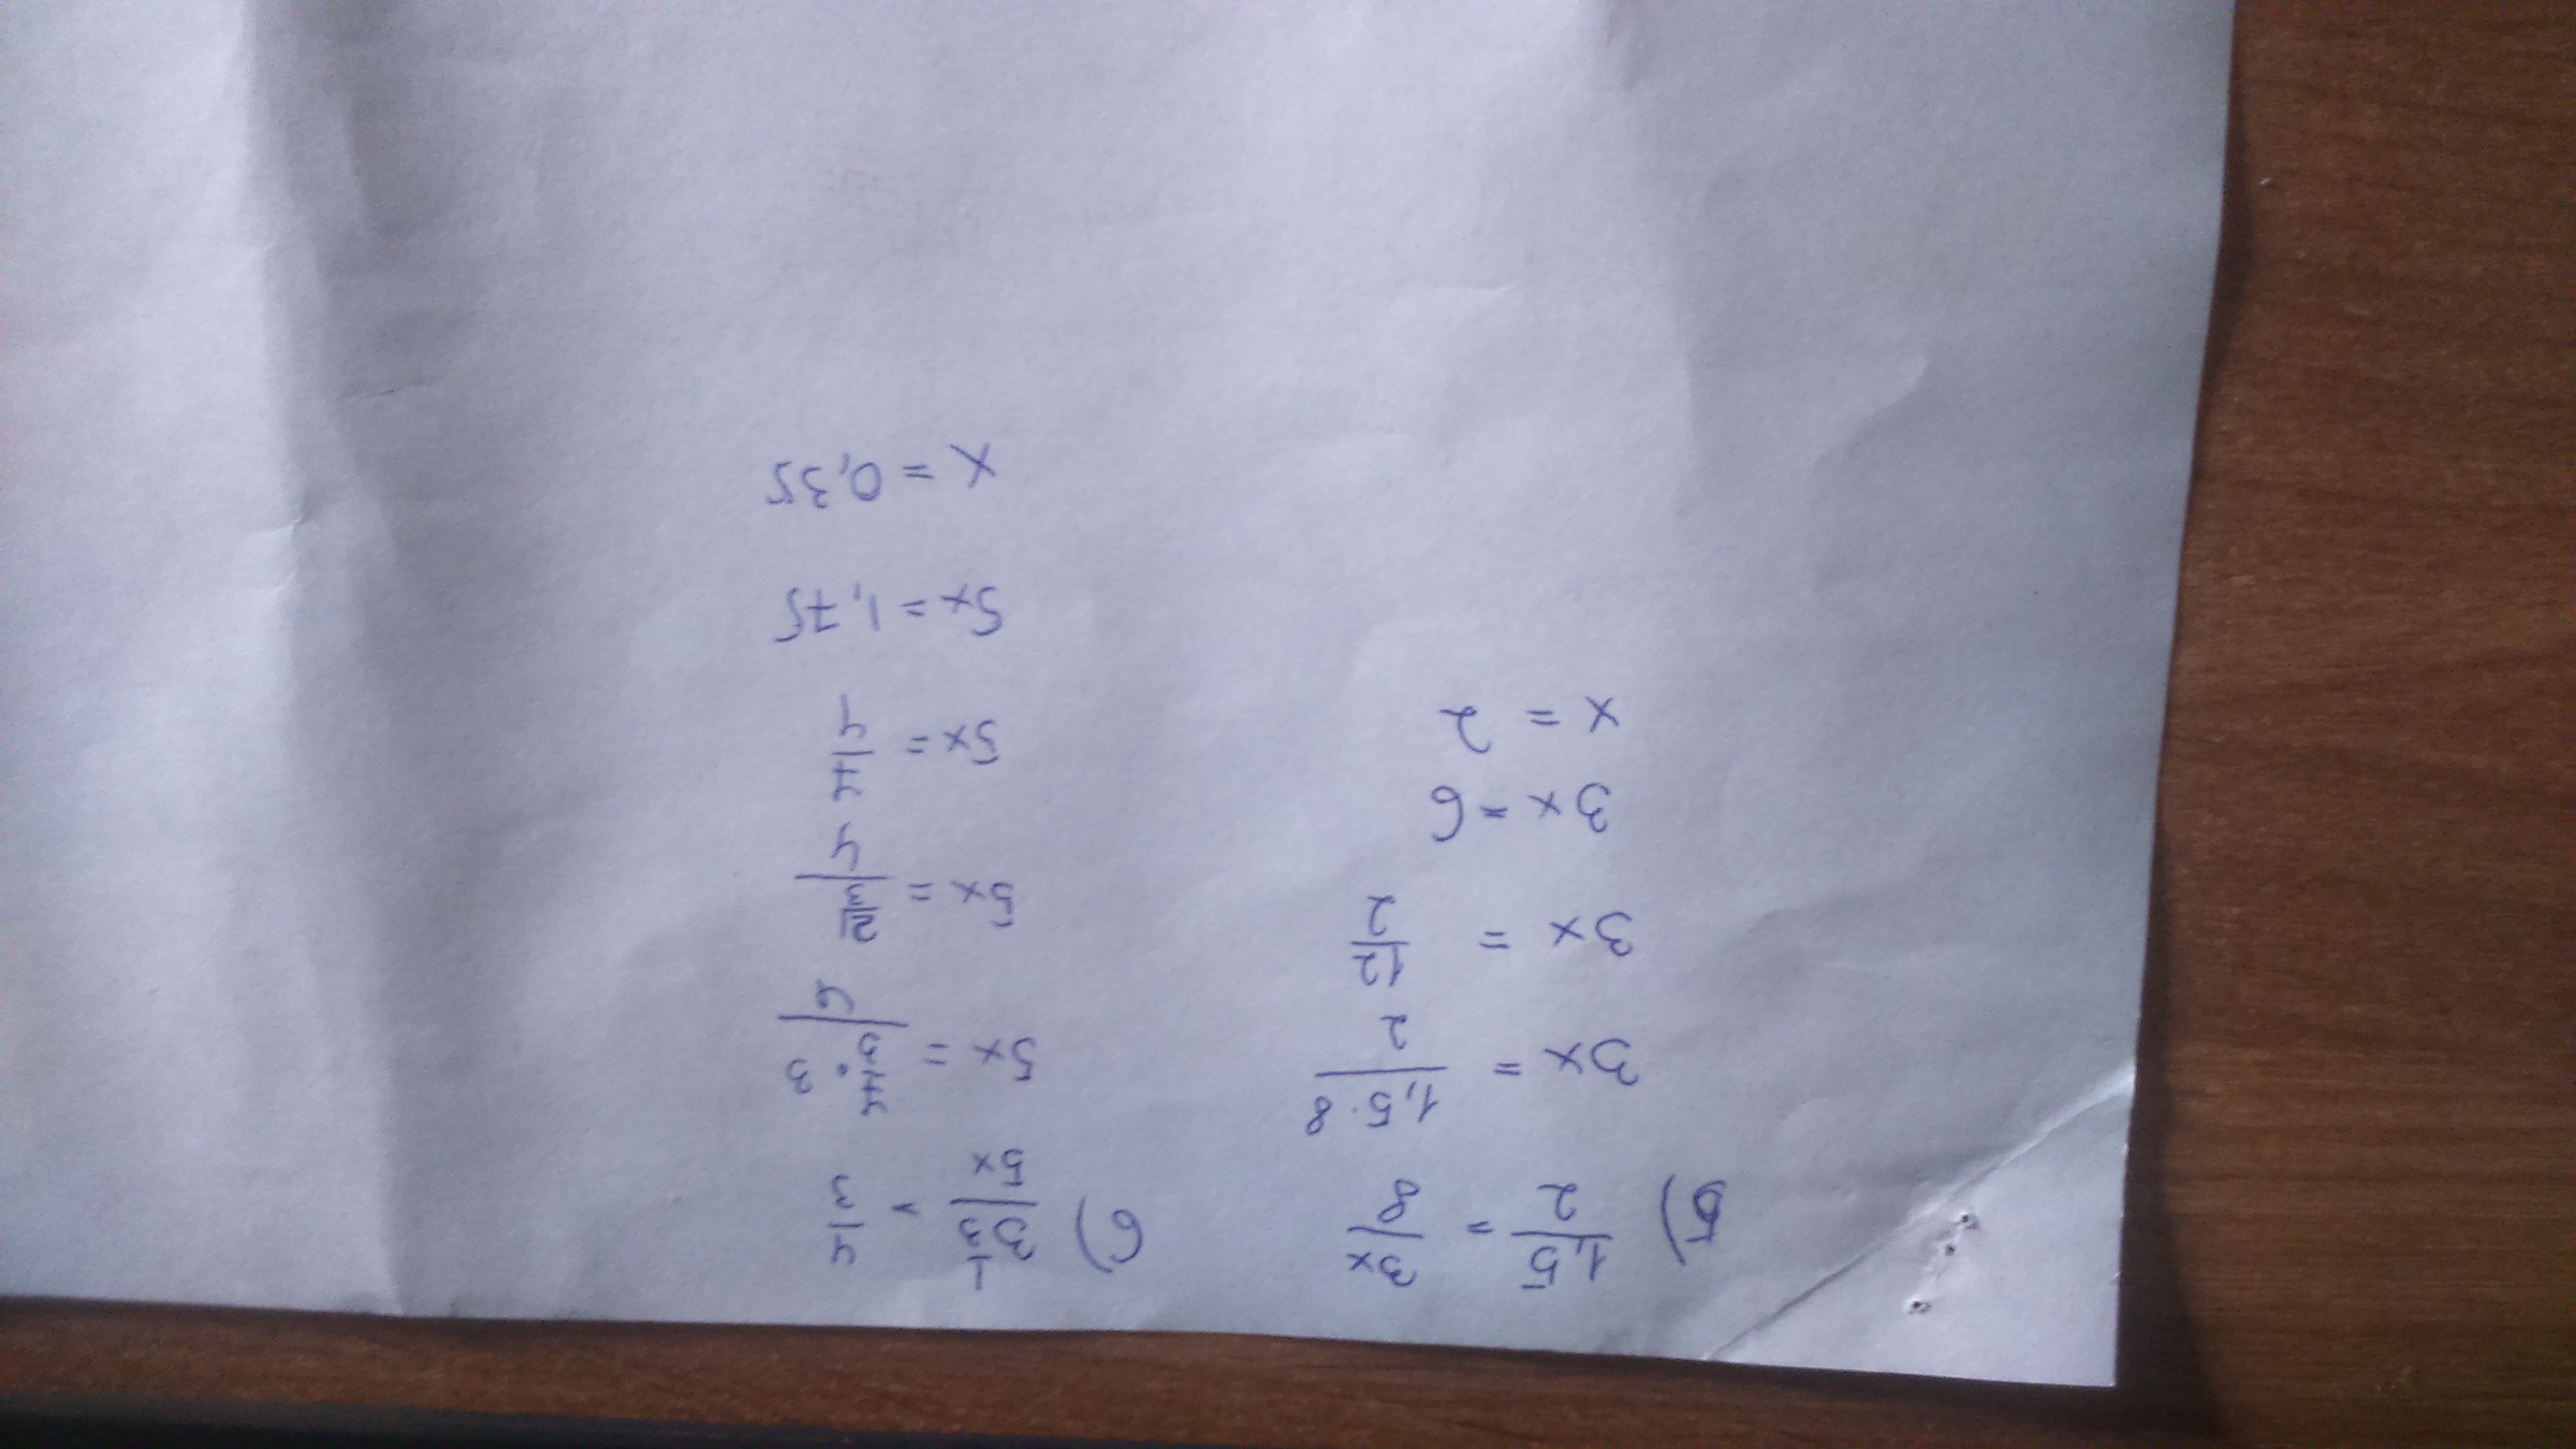 5) 1,5/2 = 3x/8
3x = 1,5·8/2
3x = 12/2
3x = 6
x = 2
6) 3 1/3/5x = 4/3
5x = 7/3·3/4
5x = 21/3/4
5x = 7/4
5x = 1,75
x = 0,35